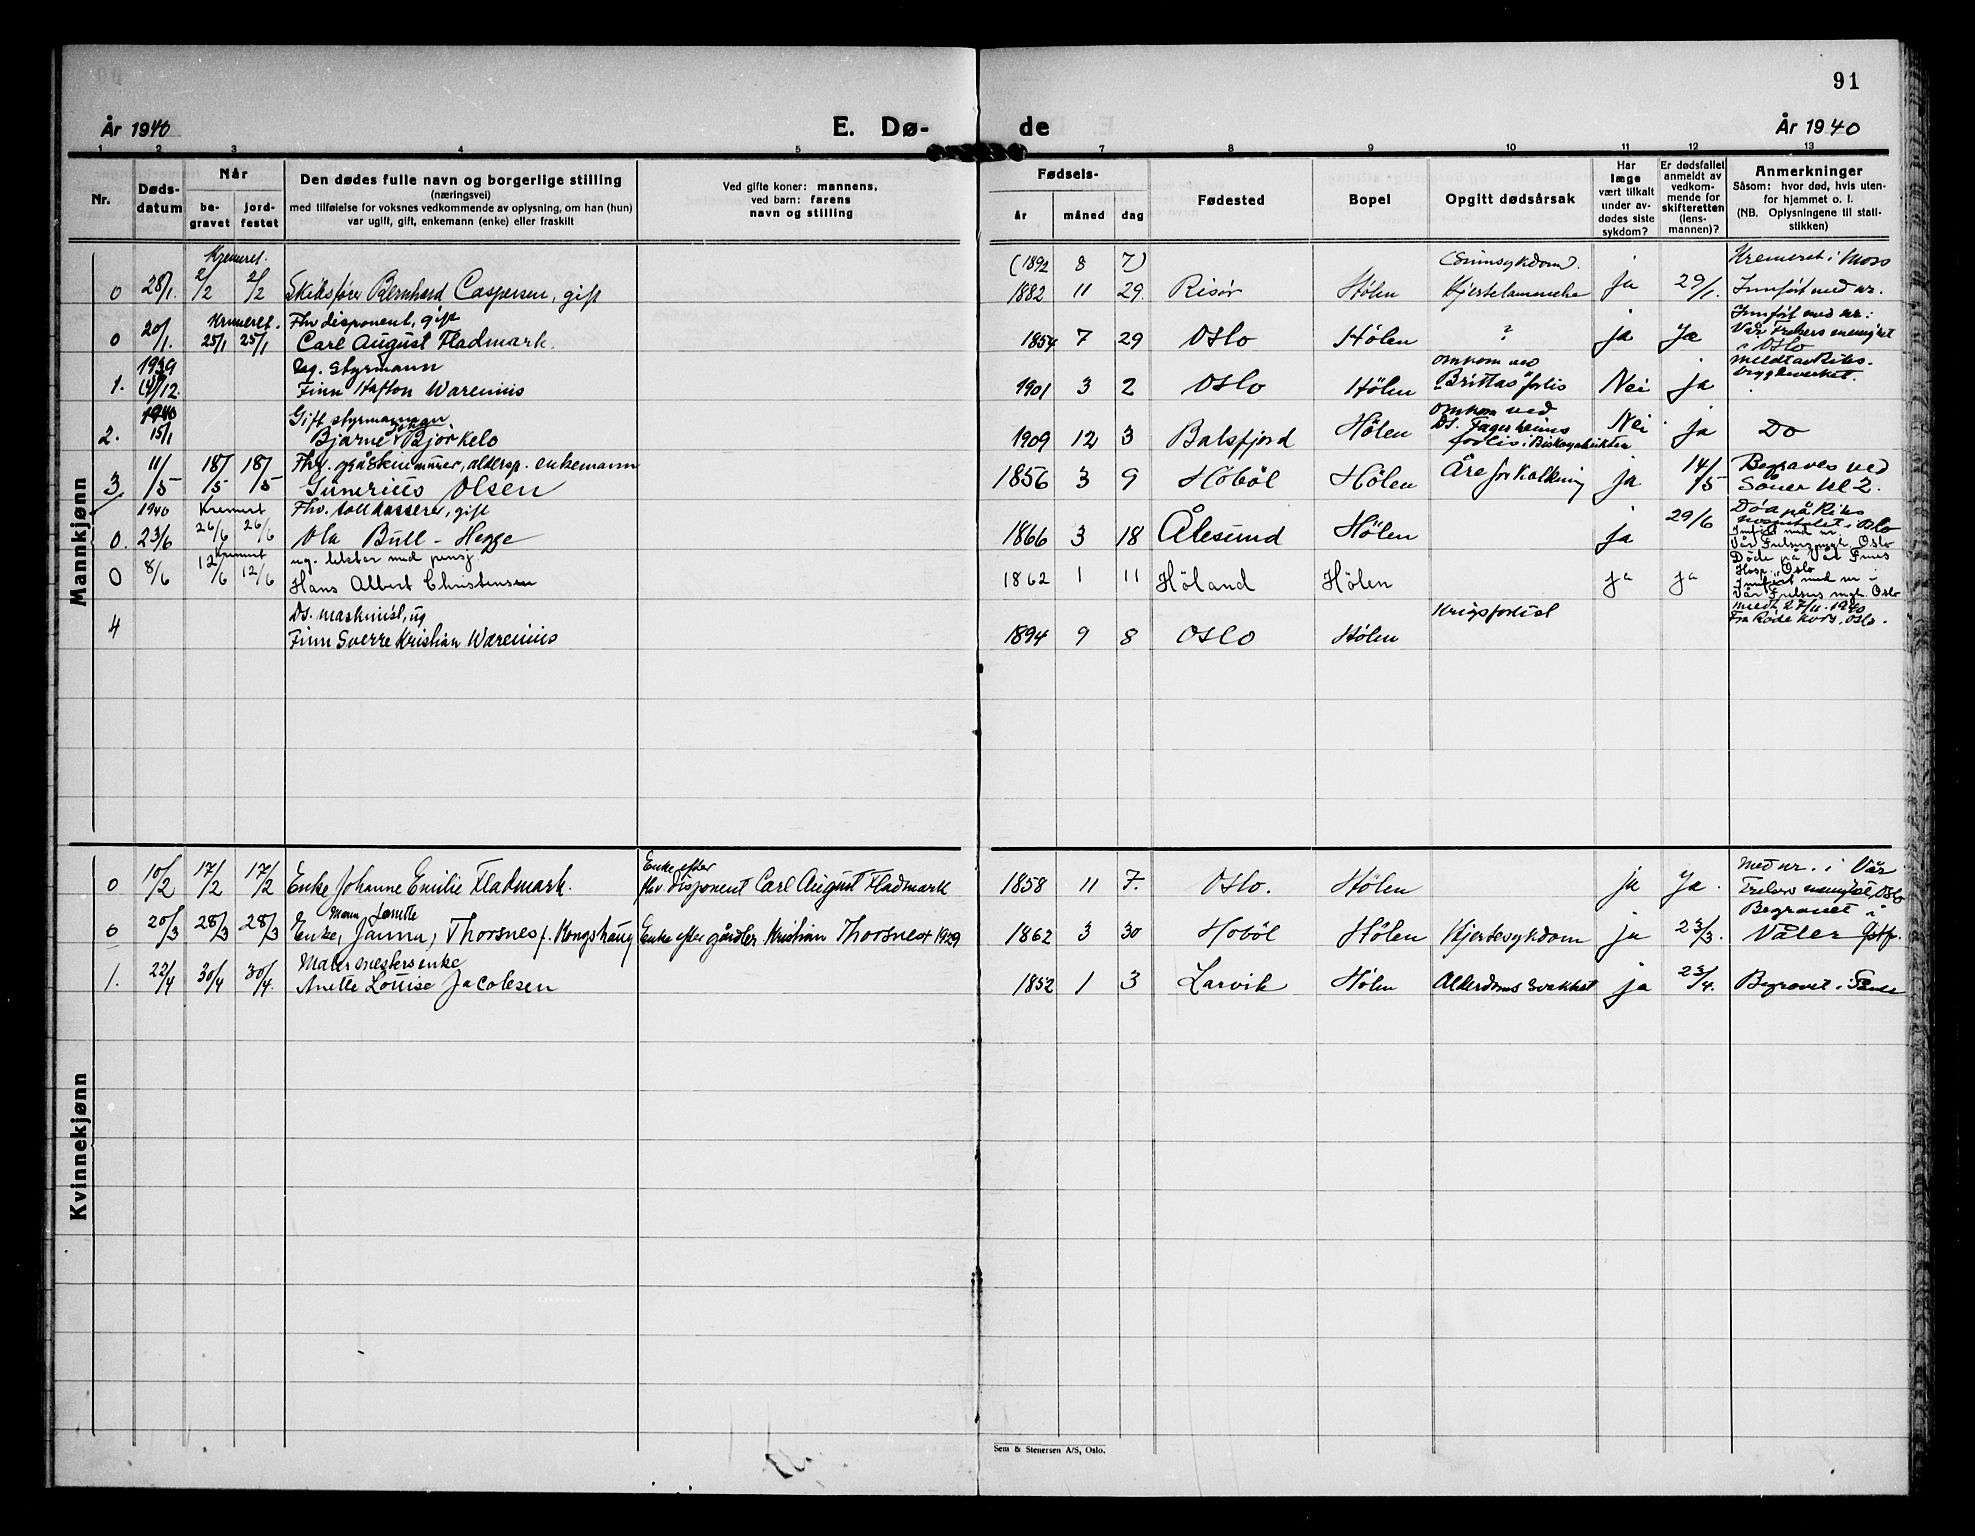 91
År 1940
E. Dø-
de
År 1940
1 2 3 4 5 7 8 9 10 11 12 13
Nr.
Døds-
datum
Når
be-
gravet
jord-
festet
Den dødes fulle navn og borgerlige stilling
(næringsvei)
med tilføielse for voksnes vedkommende av oplysning, om han (hun)
var ugift, gift, enkemann (enke) eller fraskilt
Ved gifte koner: mannens,
ved barn: farens
navn og stilling
Fødsels-
år måned dag
Fødested
Bopel
Opgitt dødsårsak
Har
læge
vært tilkalt
under av-
dødes siste
sykdom?
Er dødsfallet
anmeldt av
vedkom-
mende for
skifteretten
(lens-
mannen)?
Anmerkninger
Såsom: hvor død, hvis uten-
for hjemmet o. l.
(NB. Oplysningene til stati-
stikken)
Mankjønn
Kremeret.
(1892 8 7)
(Sinnsykdom).
Kremeret i Moss
0 28/1. 2/2 2/2 Skibsfører Bernhard Caspersen, gift
1882 11 29. Risör Hölen Hjertelammelse ja 29/1. Innført med nr.
Kremeret. Fhv disponent, gift
Innført med nr:
0 20/1. 25/1 25/1 Carl August Fladmark.
1854 7 29 Oslo Hölen ? ja Ja Vår Frelsers menighet
i Oslo
1939 Ug. styrmann
omkom ved
meldt av Riks-
1. 12. Finn Hafton Warenius
1901 3 2 Oslo Hölen "Brittas" forlis Nei ja
1940 Gift styrmann
omkom ved
2. 15/1 Bjarne Bjørkelo
1909 12 3 Balsfjord Hölen DS. Fagerheims Nei ja Do
forlis i Biskayabukten
3 11/5 18/5 18/5 Fhv. gråskinnsmurer, aldersp. enkemann
Gunerius Olsen
1856 3 9 Hobøl Hölen Åreforkalkning ja 14/5 Begraves ved
Såner kl 2.
1940 Kremert Fhv. tollkasserer, gift
Død på Riks
hospitalet i Oslo
0. 23/6 26/6 26/6 Ola Bull-Hegge
1866 3 18 Ålesund Hölen ja 29/6
Innført med nr
Vår Frelsers mgh. Oslo
Kremert
0 8/6 12/6 12/6 Hans Albert Christensen
1862 1 11 Höland Hölen ja ja
Døde på Vår Frues
Hosp. Oslo
Innført med nr i
Vår Frelsers mgh. Oslo
4 Ds. maskinist, ug
Finn Sverre Kristian Warenius
1894 9 8 Oslo Hölen Krigsforlist
Meldt 27/11.1940
Fra Røde Kors, Oslo.
Kvinnekjønn
0 10/2 17/2 17/2 Enke Johanne Emilie Fladmark.
Enke efter
fhv disponent Carl August Fladmark
1858 11 7. Oslo. Hölen ja Ja.
Med nr. i Vår
Frelsers menighet, Oslo
0 20/3 28/3 28/3 Enke, Janna, Thorsnes f. Kongshaug
Enke efter gårdbr Kristian Thorsnes + 1929
1862 3 30 Hobøl Hölen Hjertesykdom ja 23/3.
Begravet i
Våler Østf.
1. 22/4 30/4 30/4. Malermestersenke
Anette Louise Jacobsen
1852 1 3 Larvik Hölen Alderdomssvakhet ja 23/4. Begravet i Såner
Sem & Stenersen A/S, Oslo.